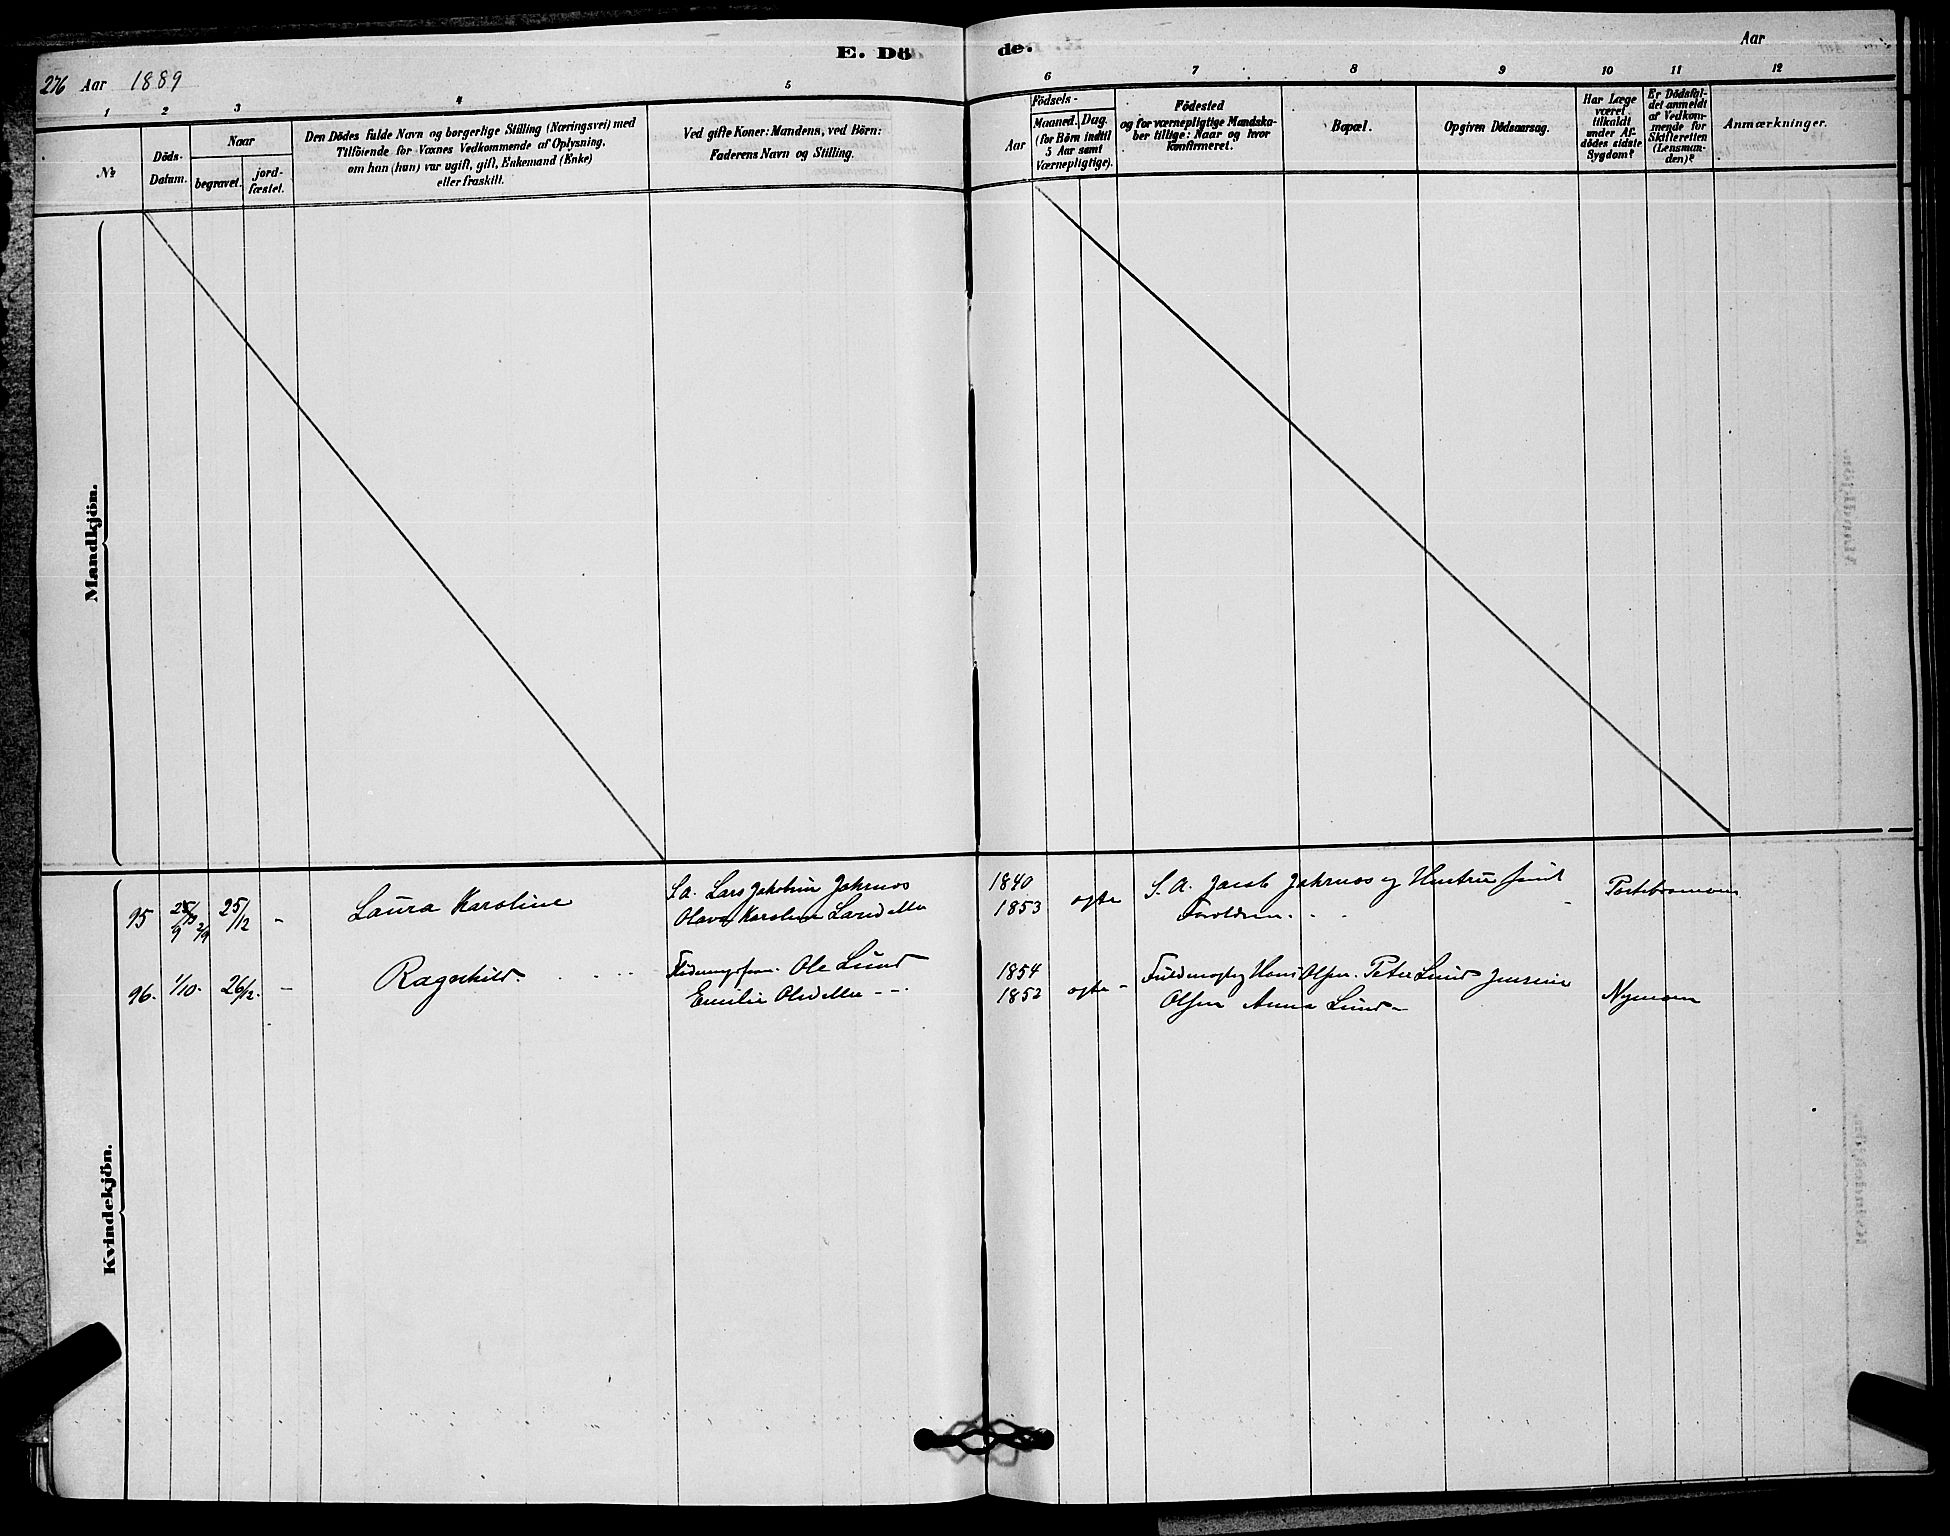 276 Aar 1889
E. Dö
de.
Aar
1 2 3 4 5
6 7 8 9 10 11 12
№
Döds-
Datum.
Naar
begravet.
jord-
fæstet.
Den Dödes fulde Navn og borgerlige Stilling (Næringsvei) med
Tilföiende for Voxnes Vedkommende af Oplysning,
om han (hun) var ugift, gift, Enkemand (Enke)
eller fraskilt.
Ved gifte Koner: Mandens, ved Börn:
Faderens Navn og Stilling.
Födsels-
Aar
Maaned. Dag.
(for Börn indtil
5 Aar samt
Værnepligtige).
Födested
og for værnepligtige Mandska-
ber tillige: Naar og hvor
konfirmeret.
Bopæl.
Opgiven Dödsaarsag.
Har Læge
været
tilkaldt
under Af-
dödes sidste
Sygdom?
Er Dödsfal-
det anmeldt
af Vedkom-
mende for
Skifteretten
(Lensman-
den)?
Anmærkninger.
Mandkjön.
Kvindekjön.
95 25/12 - Laura Karoline
S.a. Lars Jakobsen
Olava Karoline
1840
1853
ogte
S. A. Jacob og Hustru
96. 1/10. 26/12. - Ragnhild.
Ole Lund
Emilie
1854
1852
ogte -
Hans Olsen. Peter Lund
Olsen Anna Lund -